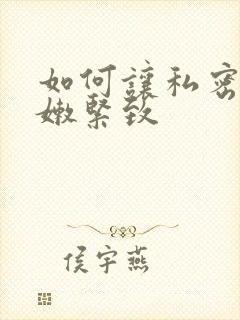 如何讓私密
嫩緊致
侯宇燕